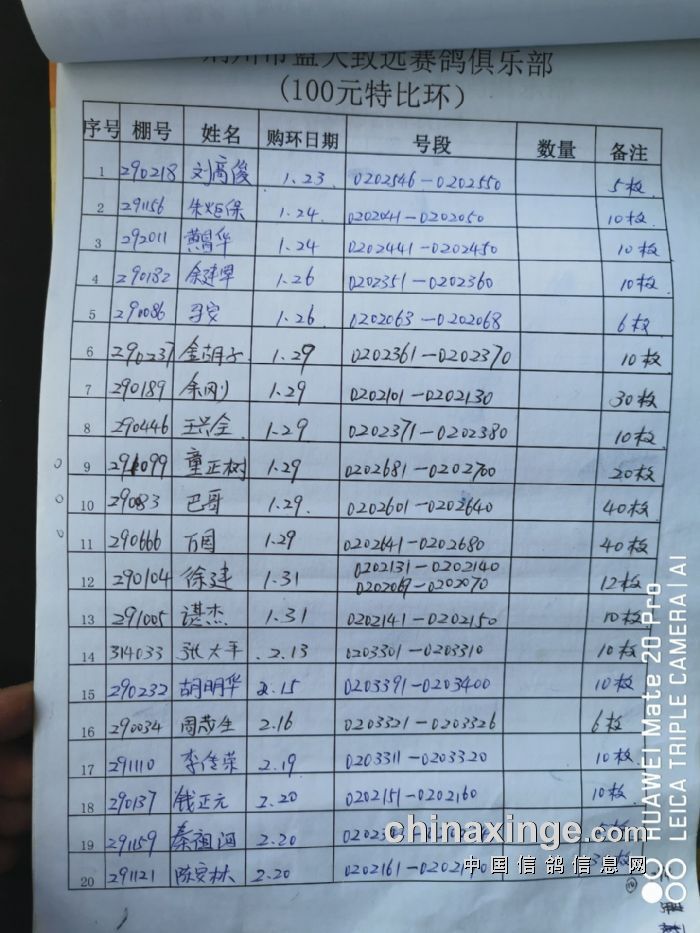 荆州市蓝天致远赛鸽俱乐部
(100元特比环)
序号 棚号 姓名 购环日期 号段 数量 备注
1 290218 刘高俊 1.23 0202546-0202550 5枚
2 291156 朱炬保 1.24 0202041-0202050 10枚
3 292011 黄昌华 1.24 0202441-0202450 10枚
4 290182 余建军 1.26 0202351-0202360 10枚
5 290086 1.26 0202063-0202068 6枚
6 290237 金胡子 1.29 0202361-0202370 10枚
7 290189 余刚 1.29 0202101-0202130 30枚
8 290446 王兴全 1.29 0202371-0202380 10枚
9 291099 童正树 1.29 0202681-0202700 20枚
10 29083 巴哥 1.29 0202601-0202640 40枚
11 290666 万园 1.29 0202641-0202680 40枚
12 290104 徐建 1.31 0202131-0202140 12枚
0202069-0202070
13 291005 谌杰 1.31 0202141-0202150 10枚
14 314033 张大平 2.13 0203301-0203310 10枚
15 290232 胡明华 2.15 0203391-0203400 10枚
16 290034 周茂生 2.16 0203321-0203326 6枚
17 291110 李传荣 2.19 0203311-0203320 10枚
18 290137 钱正元 2.20 0202151-0202160 10枚
19 291159 秦祖河 2.20
20 291121 陈安林 2.20
chinaxinge.com
中国信鸽信息网
HUAWEI Mate 20 Pro
LEICA TRIPLE CAMERA | AI